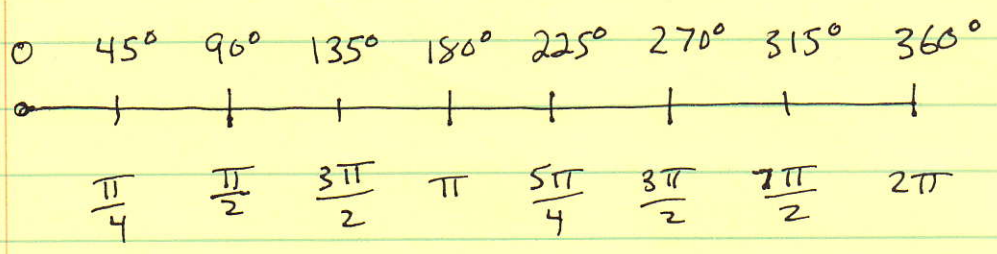 0 45° 90° 135° 180° 225° 270° 315° 360°
π/4 π/2 3π/2 π 5π/4 3π/2 7π/2 2π